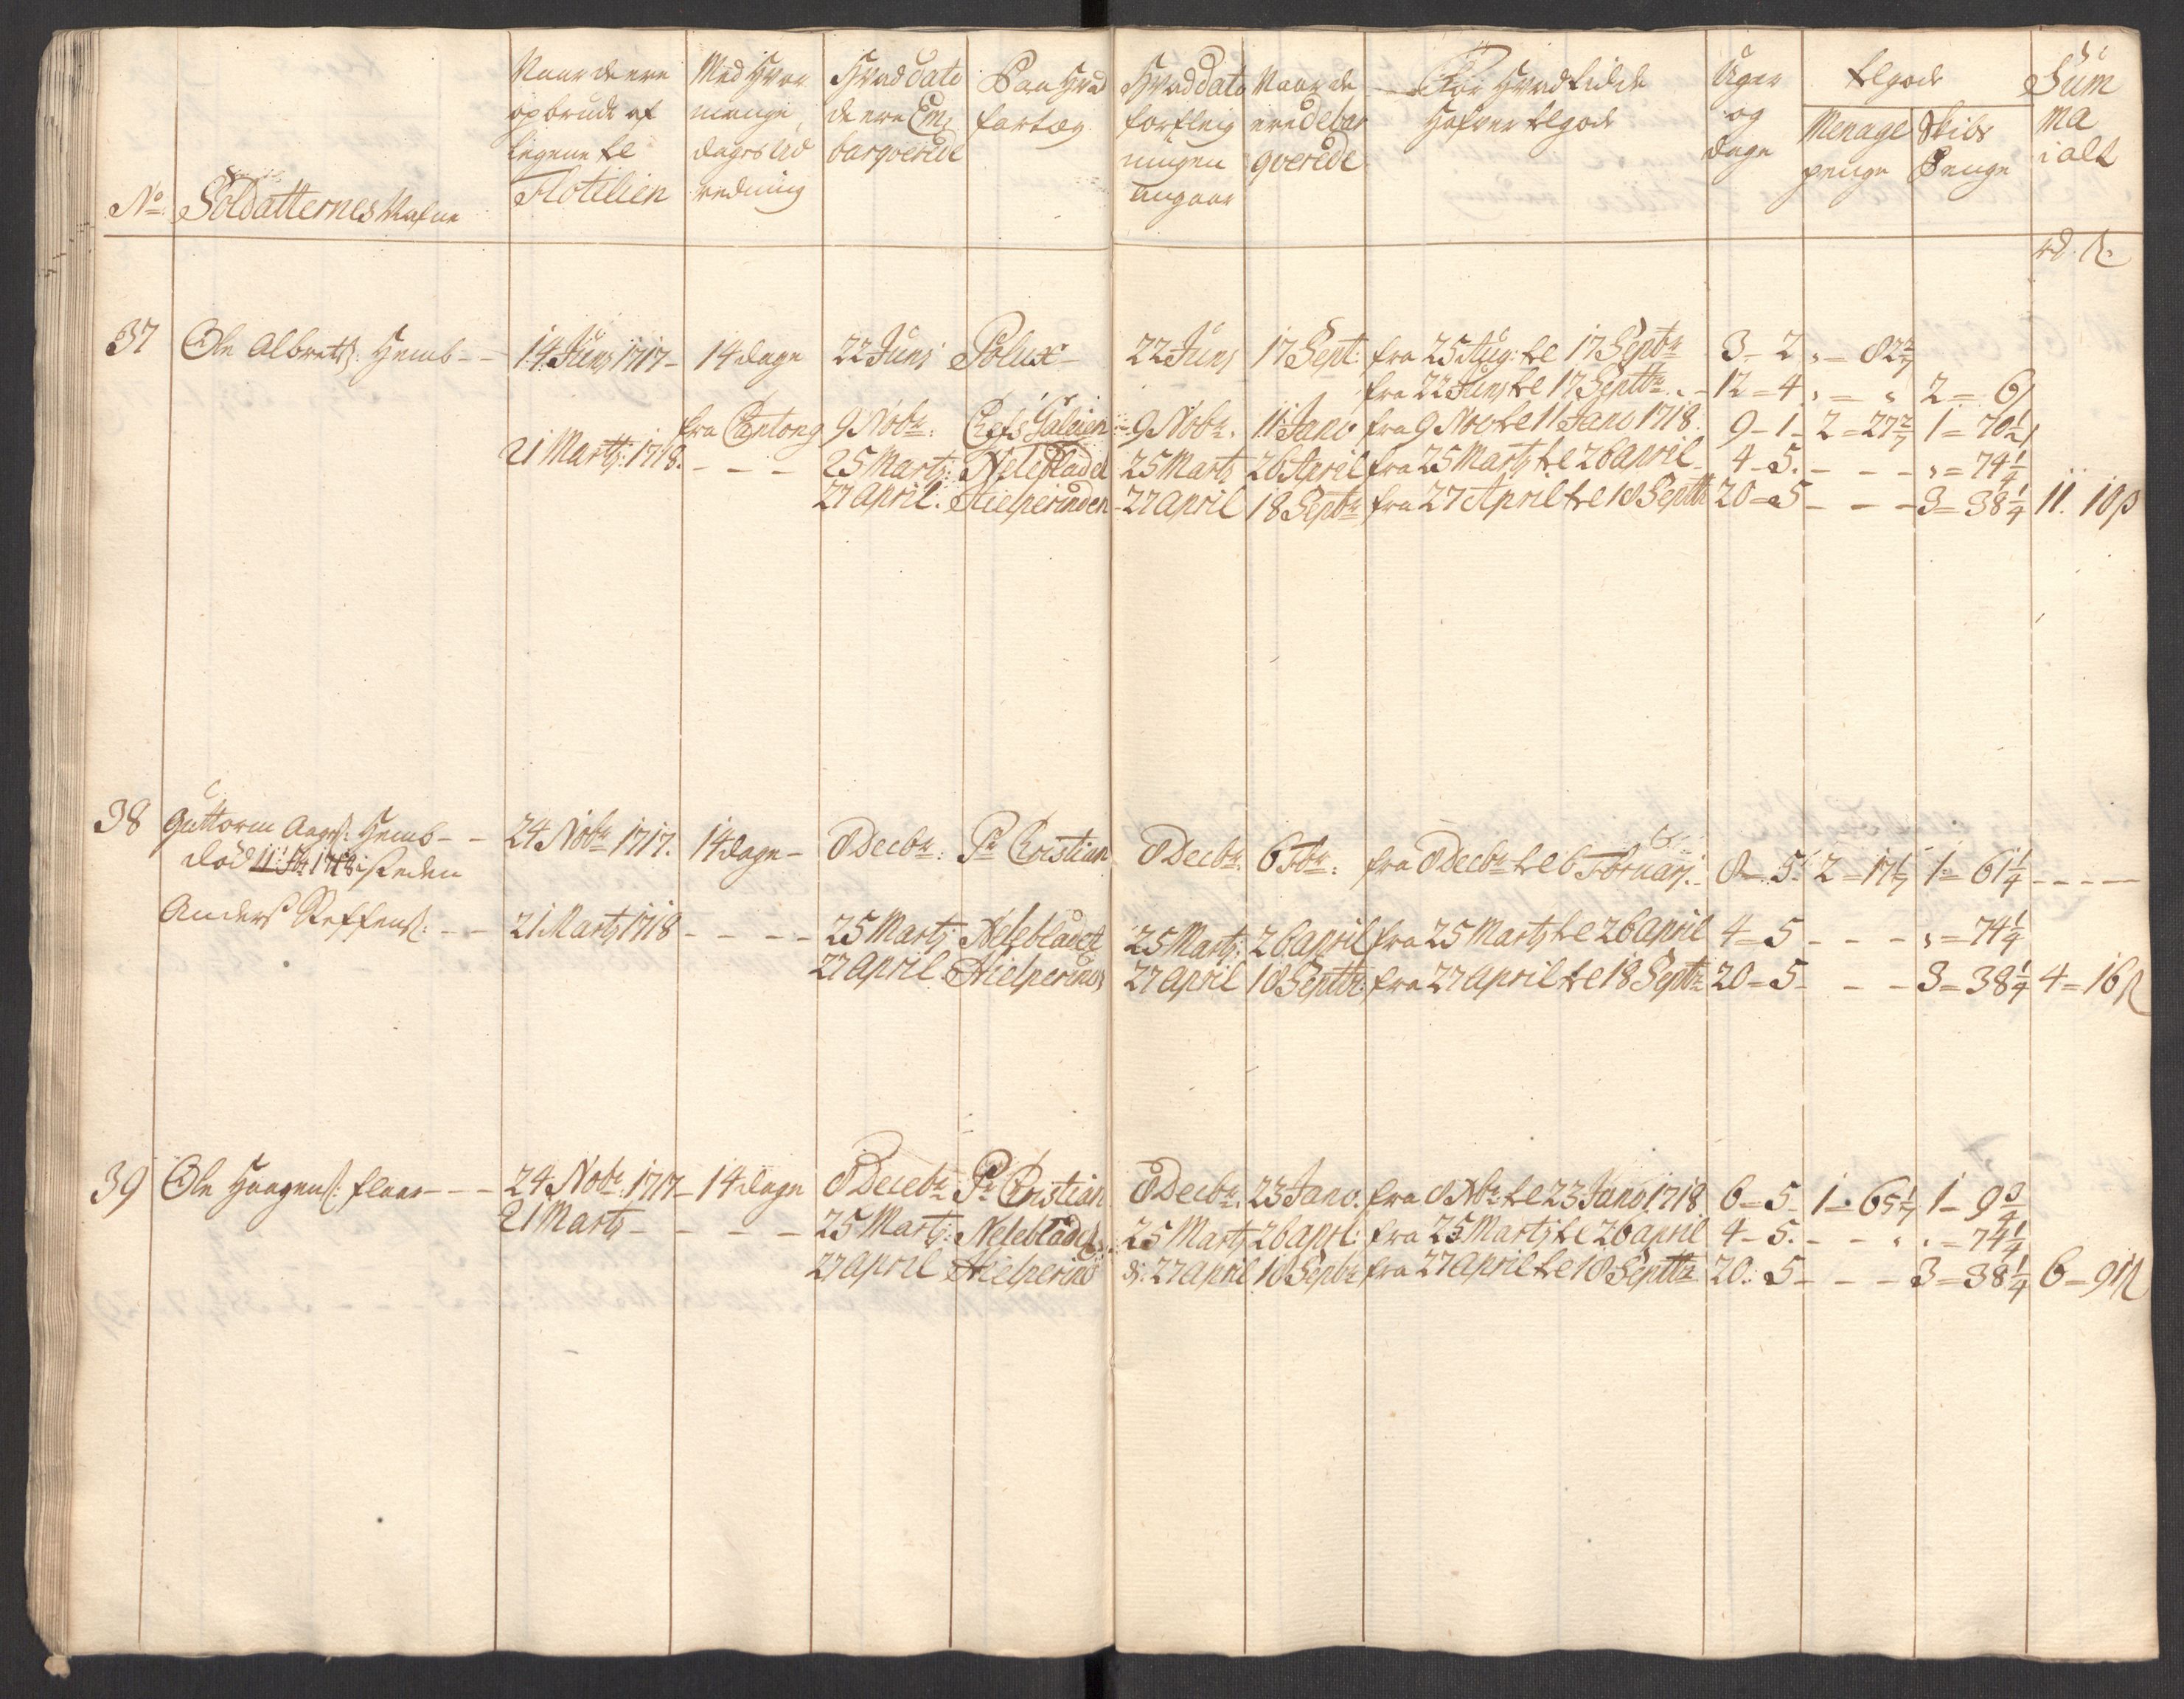 No Soldatternes Nafne
Naar de ere opbrudt af legene til Flotilien
Med Hvor mange dages Ud redning
Hvad dato de ere Em barqverede
Paa Hvad fartøy
Hvad dato forpleig ningen angaar
Naar de ere debar qverede
For Hvad tid de Hafver tilgode
Uger og dage
tilgode
Menage penge
Skibs Penge
Sum ma i alt
rd. ß.
37 Ole Albrets: Hemb - - 14 Junj 1717 - 14 dage 22 Junj Polux - 22 Junj 17 Sept: fra 25 Aug: til 17 Septbr 3 - 2 „ = 82 2/7
fra 22 Junj til 17 Septbr - 12 = 4 „ = „ 2 = 6
fra Cantong 9 Nobr: Chefs Galeien 9 Nobr. 11 Janv fra 9 Nov til 11 Janv 1718. 9 - 1 - 2 = 27 2/7 1 = 70 1/4
21 Martj: 1718. - - - 25 Martj: Nelebladet 25 Martj 26 April fra 25 Martj til 26 april - 4 - 5. - - - „ = 74 1/4
27 april. Hielperinden - 27 april 18 Septbr fra 27 April til 18 Septbr 20 = 5 - - - 3 = 38 1/4 11. 10 ß
38 Guttorm Aages: Hemb - - 24 Nobr 1717. 14 dage - 8 Decbr: Pr Cristian 8 Decbr. 6 Fbr: fra 8 Decbr til 6 Februarj. - 8 = 5. 2 = 17 1/7 1 = 61 1/4 - - - -
død 11: 1718
Anders Steffens: - - 21 Martj 1718 - - - - 25 Martj: Neleblaeet 25 Martj: 26 april fra 25 Martj til 26 april 4 = 5 - - - „ = 74 1/4
27 april Hielperind 27 april 18 Septbr: fra 27 april til 18 Septbr 20 = 5 - - - 3 = 38 1/4 4 = 16 ß
39 Ole Haagens: flaar - - - 24 Nobr: 1717 - 14 dage 8 Decebr Pr Cristian 8 Decbr. 23 Janv. fra 8 Xbr til 23 Janv 1718 6 = 5 - 1 = 65 1/7 1 - 9 3/4
21 Martj - - - - 25 Martj: Neleblade 25 Martj 26 aprl: fra 25 Martj til 26 april 4 - 5. - - „ „ = 74 1/4
27 april Hielperind 27 april 18 Septbr fra 27 april til 18 Septbr 20. 5 - - - 3 = 38 1/4 6 = 91 ß